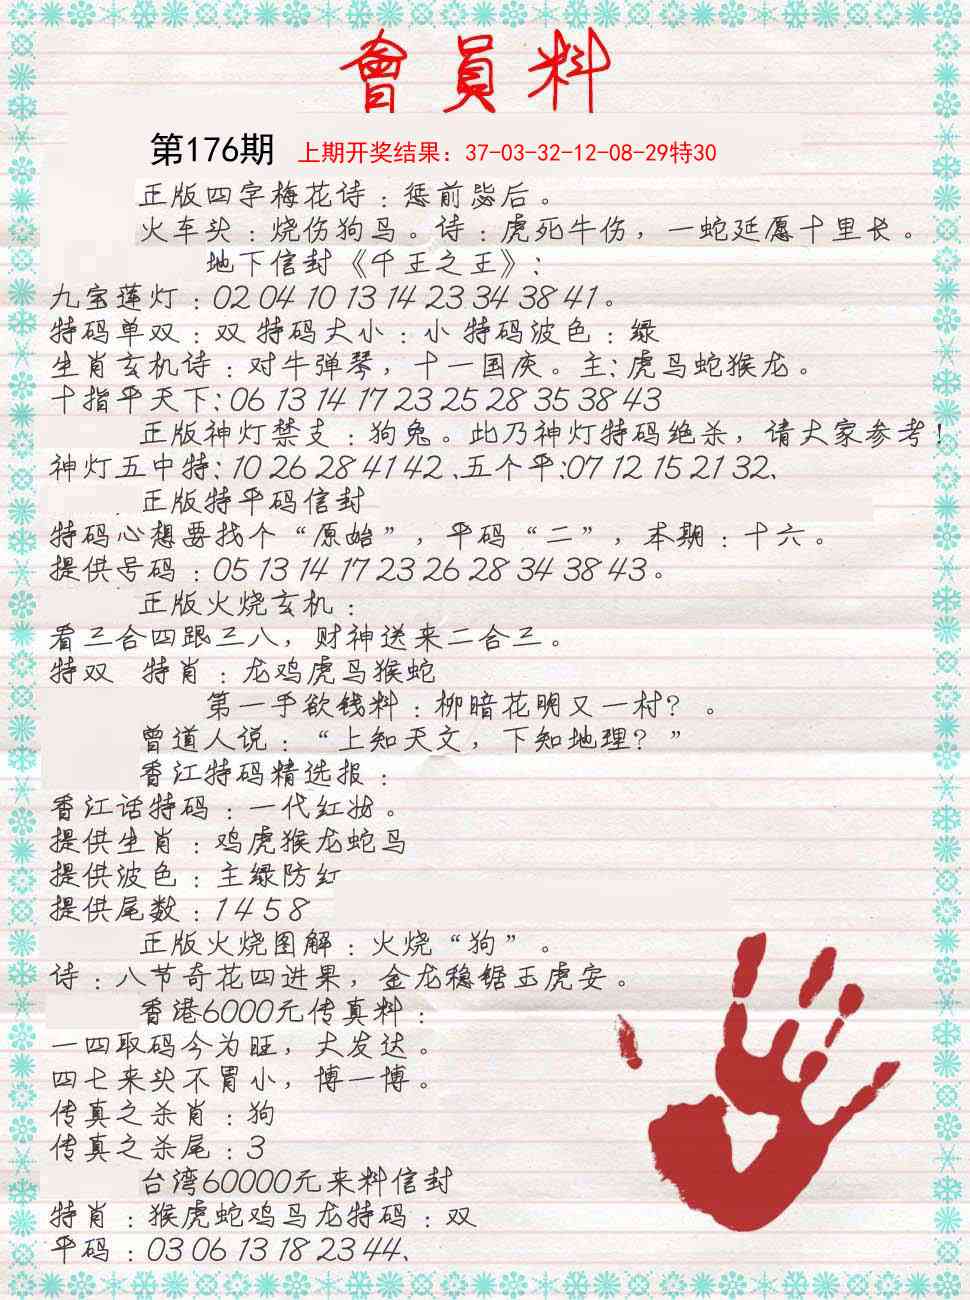 會員料
第176期 上期开奖结果：37-03-32-12-08-29特30
正版四字梅花诗：惩前毖后。
火车头：烧伤狗马。诗：虎死牛伤，一蛇延愿十里长。
地下信封《千王之王》：
九宝莲灯：02 04 10 13 14 23 34 38 41。
特码单双：双 特码大小：小 特码波色：绿
生肖玄机诗：对牛弹琴，十一国庆。主：虎马蛇猴龙。
十指平天下：06 13 14 17 23 25 28 35 38 43
正版神灯禁支：狗兔。此乃神灯特码绝杀，请大家参考！
神灯五中特：10 26 28 41 42、五个平：07 12 15 21 32、
正版特平码信封
特码心想要找个“原始”，平码“二”，本期：十六。
提供号码：05 13 14 17 23 26 28 34 38 43。
正版火烧玄机：
看三合四跟三八，财神送来二合三。
特双 特肖：龙鸡虎马猴蛇
第一手欲钱料：柳暗花明又一村？。
曾道人说：“上知天文，下知地理？”
香江特码精选报：
香江话特码：一代红妆。
提供生肖：鸡虎猴龙蛇马
提供波色：主绿防红
提供尾数：1 4 5 8
正版火烧图解：火烧“狗”。
诗：八节奇花四进果，金龙稳锯玉虎安。
香港6000元传真料：
一四取码今为旺，大发达。
四七来头不胃小，博一博。
传真之杀肖：狗
传真之杀尾：3
台湾60000元来料信封
特肖：猴虎蛇鸡马龙特码：双
平码：03 06 13 18 23 44、